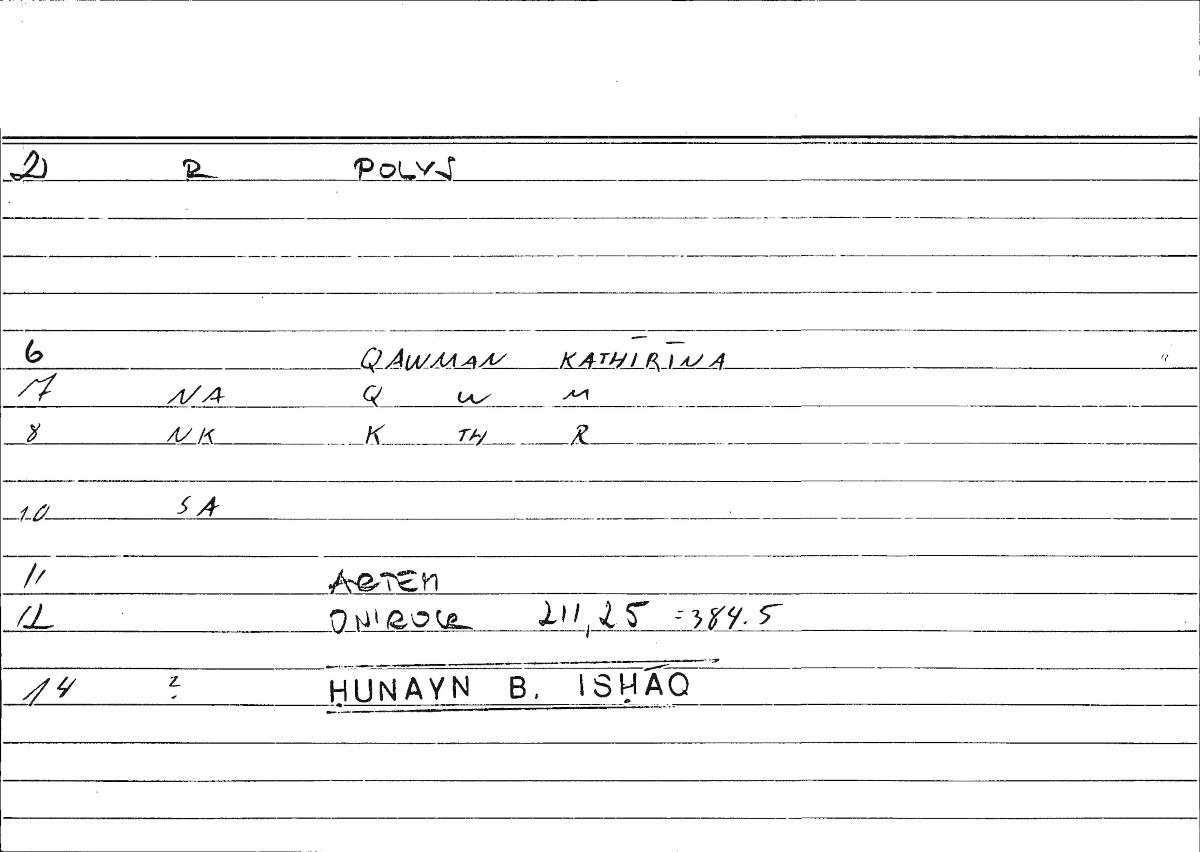 2) R POLYS
6 QAWMAN KATHĪRĪNA
7 NA Q W M
8 NK K TH R
10 SA
11 ARTEM
12 ONIROCR 211,25 =384.5
14 ? ḤUNAYN B. ISḤĀQ